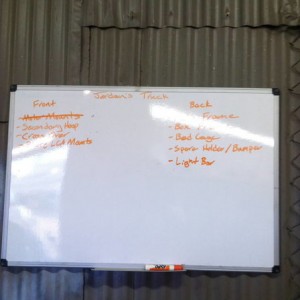 Jordan's Truck
Front
- Motor Mounts
- Secondary Hoop
- Cross
- LCA Mounts
Back
Frame
- Box
- Bed Cage
- Spare Holder/Bumper
- Light Bar